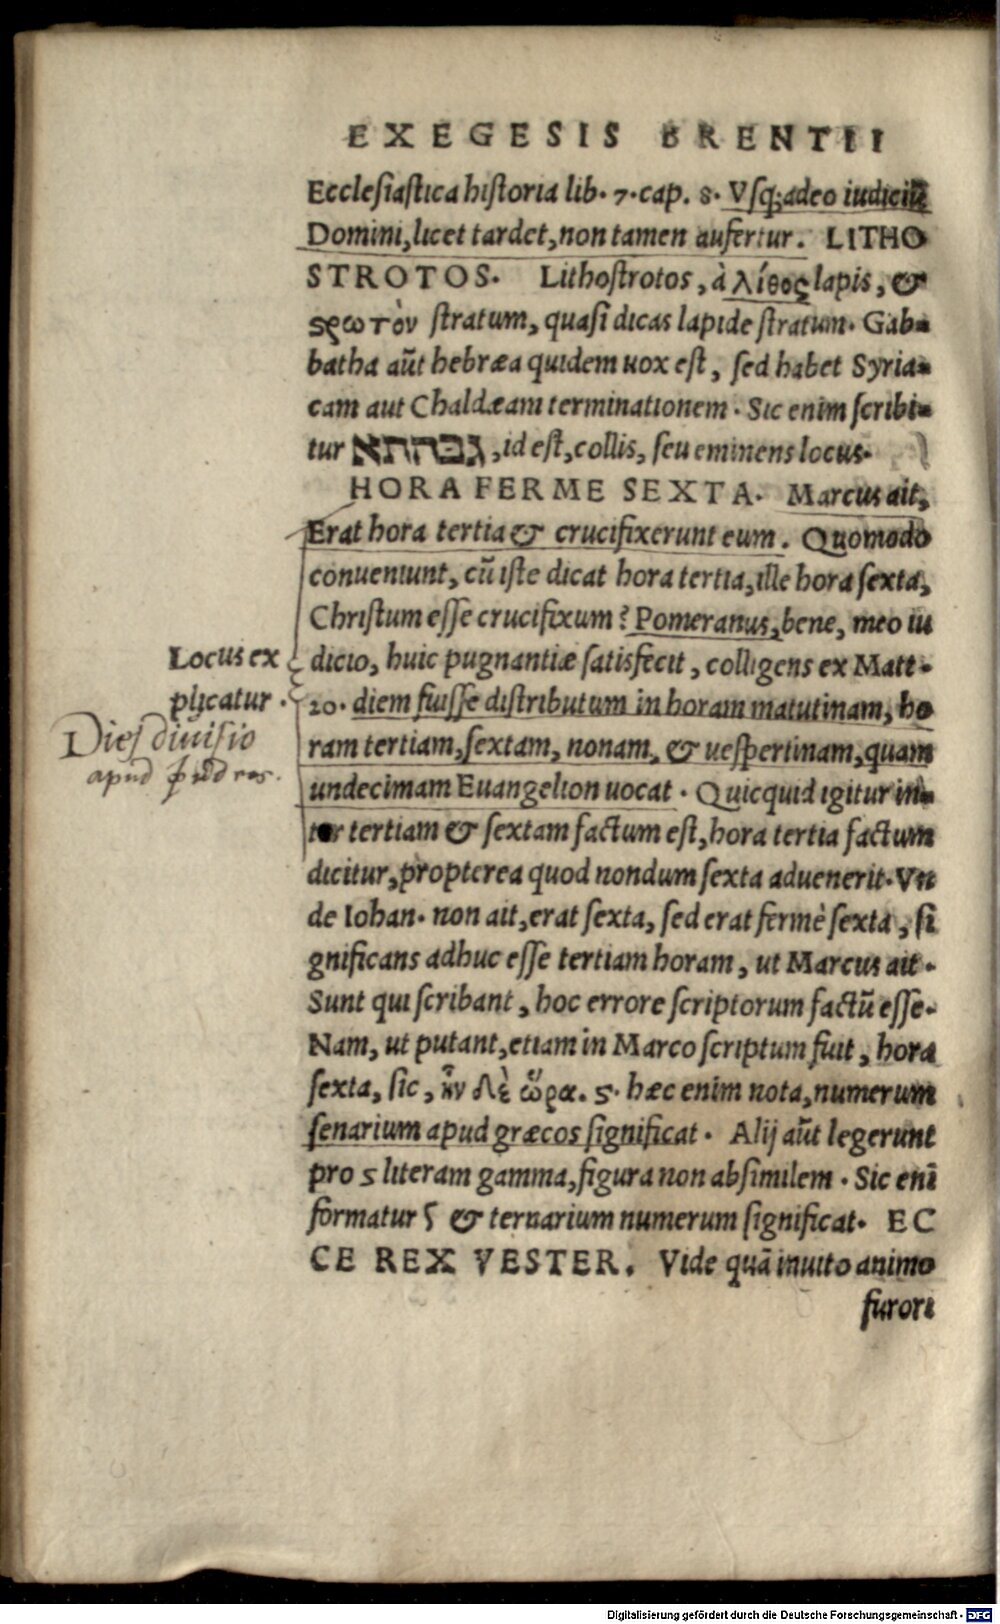 EXEGESIS BRENTII
Ecclesiastica historia lib. 7. cap. 8. Vsq; adeo iudiciũ
Domini, licet tardet, non tamen aufertur. LITHO
STROTOS. Lithostrotos, à λίθος lapis, &
ςρωτὸν stratum, quasi dicas lapide stratum. Gab-
batha aũt hebræa quidem uox est, sed habet Syria-
cam aut Chaldæam terminationem. Sic enim scribi-
tur גבהתא, id est, collis, seu eminens locus.
HORA FERME SEXTA. Marcus ait,
Erat hora tertia & crucifixerunt eum. Quomodo
conueniunt, cũ iste dicat hora tertia, ille hora sexta,
Christum esse crucifixum? Pomeranus, bene, meo iu
Locus ex
plicatur.
Dies diuisio
apud
dicio, huic pugnantiæ satisfecit, colligens ex Matt.
20. diem fuisse distributum in horam matutinam, ho
ram tertiam, sextam, nonam, & uespertinam, quam
undecimam Euangelion uocat. Quicquid igitur in-
ter tertiam & sextam factum est, hora tertia factum
dicitur, propterea quod nondum sexta aduenerit. Vn
de Iohan. non ait, erat sexta, sed erat fermè sexta, si
gnificans adhuc esse tertiam horam, ut Marcus ait.
Sunt qui scribant, hoc errore scriptorum factũ esse.
Nam, ut putant, etiam in Marco scriptum fuit, hora
sexta, sic, ἦν δὲ ὥρα. ς. hæc enim nota, numerum
senarium apud græcos significat. Alij aũt legerunt
pro ς literam gamma, figura non absimilem. Sic enĩ
formatur & ternarium numerum significat. EC
CE REX VESTER. Vide quã inuito animo
furori
Digitalisierung gefördert durch die Deutsche Forschungsgemeinschaft - DFG